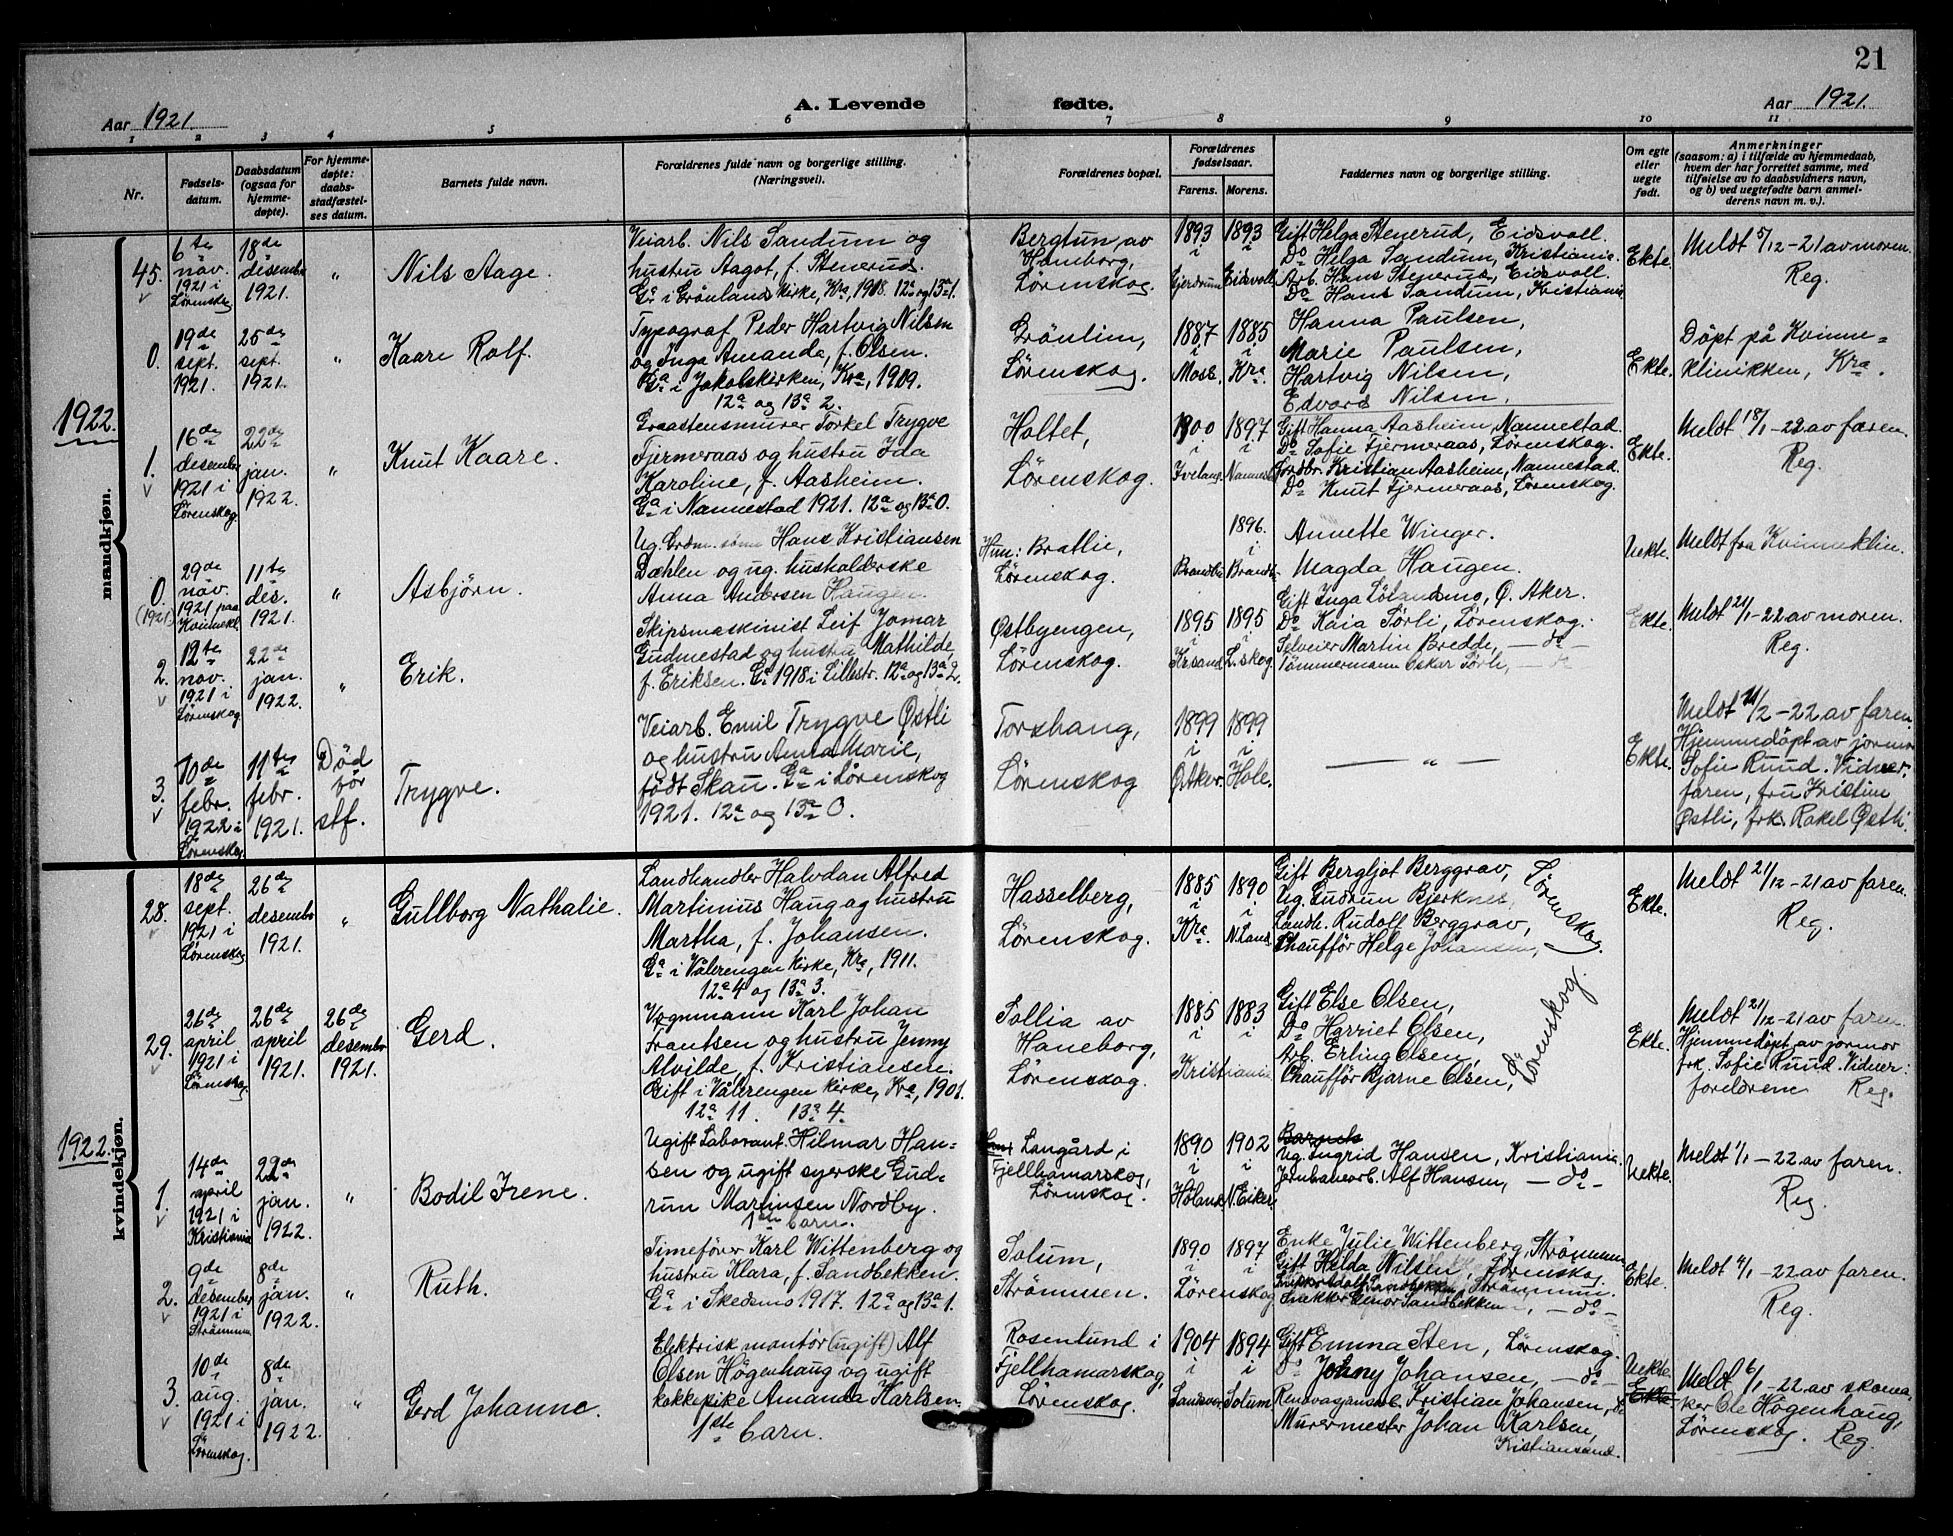 21
Aar 1921.
A. Levende fødte.
Aar 1921.
1 2 3 4 5 6 7 8 9 10 11
Nr.
Fødsels-
datum.
Daabsdatum
(ogsaa for
hjemme-
døpte).
For hjemme-
døpte:
daabs-
stadfæstel-
ses datum.
Barnets fulde navn.
Forældrenes fulde navn og borgerlige stilling.
(Næringsvei).
Forældrenes bopæl.
Forældrenes
fødselsaar.
Farens. Morens.
Faddernes navn og borgerlige stilling.
Om egte
eller
uegte
født.
Anmerkninger
(saasom: a) i tilfælde av hjemmedaab,
hvem der har forrettet samme, med
tilføielse av to daabsvidners navn,
og b) ved uegtefødte barn anmel-
derens navn m. v.).
mandkjøn.
45.
6te
nov.
1921 i
Lørenskog
18de
desember
1921.
"
Nils Aage.
Veiarb. Nils Sandum og
hustru Aagot, f. Stenerud.
Ga i Grønlands kirke, Kra, 1918. 12a og 13a 1.
Bergtun, av
Haneborg,
Lørenskog.
1893
i
Gjerdrum
1893
i
Eidsvoll
Gift Helga Stenerud, Eidsvoll.
Do Helga Sandum, Kristiania.
Arb. Hans Stenerud, Eidsvoll.
Do Hans Sandum, Kristiania
Ekte.
Meldt 5/12-21 av moren.
Reg.
0.
19de
sept.
1921.
25de
sept.
1921.
"
Kaare Rolf.
Typograf Peder Hartvig Nilsen
og Inga Amanda, f. Olsen.
Ga i Jakobskirken, Kra, 1909.
12a og 13a 2.
Grönlim,
Lørenskog.
1887
i
Moss.
1885
i
Kra.
Hanna Paulsen,
Marie Paulsen,
Hartvig Nilsen,
Edvard Nilsen.
Ekte.
Døpt på Kvinne=
klinikken, Kra.
1922.
1.
16de
desember
1921 i
Lørenskog.
22de
jan.
1922.
"
Knut Kaare.
Graastensmurer Torkel Trygve
Fjermeraas og hustru Ida
Karoline, f. Aasheim.
Ga i Nannestad 1921. 12a og 13a 0.
Holtet,
Lørenskog.
1900
i
Iveland.
1897
i
Nannestad
Gift Hanna Aasheim, Nannestad.
Do Sofie Fjermeraas, Lørenskog.
Jordbr. Kristian Aasheim, Nannestad.
Do Knut Fjermeraas, Lørenskog.
Ekte.
Meldt 18/1-22 av faren.
Reg.
0.
(1921)
29de
nov.
1921 paa
Kvinnekl.
11te
des.
1921.
"
Asbjørn.
Ug. Hans Kristiansen
Dæhlen og ug. husholderske
Anna Andersen Haugen.
Hun: Bratlie,
Lørenskog.
Brandbu
1896.
i
Brandbu
Annette Winger.
Magda Haugen.
Uekte.
Meldt fra Kvinneklin.
2.
12te
nov.
1921 i
Lørenskog
22de
jan.
1922.
"
Erik.
Skipsmaskinist Leif Jomar
Gudmestad og hustru Mathilde,
f. Eriksen. Ga 1918 i Lillestr. 12a og 13a 2.
Østbyengen,
Lørenskog.
1895
i
Krsand
1895
i
L.skog.
Gift Inga Lølandsmo, Ø. Aker.
Do Kaia Sörli, Lørenskog.
Selveier Martin Bredde, — do —
Tømmermann Oskar Sörli, — do
Ekte.
Meldt 21/1-22 av moren.
Reg.
3.
10de
febr.
1922 i
Lørenskog.
11te
febr.
1921.
Död
før
stf.
Trygve.
Veiarb. Emil Trygve Østli
og hustru Anna Marie,
født Skau. Ga i Lørenskog
1921. 12a og 13a 0.
Torshang,
Lørenskog
1899
i
Ø.Aker.
1899
i
Hole.
— " —
Ekte.
Meldt 21/2-22 av faren
Hjemmedøpt av jormor
Sofie Ruud. Vidner:
faren, fru Kristine
Østli, frk. Rakel Østli.
kvindekjøn.
28.
18de
sept.
1921 i
Lørenskog
26de
desember
1921.
"
Gullborg Nathalie.
Landhandler Halvdan Alfred
Martinius Haug og hustru
Martha, f. Johansen.
Ga i Vålerengen kirke, Kra, 1911.
12a 4 og 13a 3.
Hasselberg,
Lørenskog.
1885
i
Kra.
1890
i
N.Land.
Gift Bergljot Berggrav,
Ug. Gudrun Bjerknes,
Landh. Rudolf Berggrav,
Chauffør Helge Johansen,
Lørenskog.
Ekte.
Meldt 21/12-21 av faren.
Reg.
29.
26de
april
1921 i
Lørenskog
26de
april
1921.
26de
desember
1921.
Gerd.
Vognmann Karl Johan
Frantsen og hustru Jenny
Alvilde, f. Kristiansen.
Gift i Vålerengen kirke, Kra, 1901.
12a 11. 13a 4.
Sollia av
Haneborg,
Lørenskog.
1885
i
1883
i
Kristiania
Gift Else Olsen,
Do Harriet Olsen,
Arb. Erling Olsen,
Chauffør Bjarne Olsen,
Lörenskog.
Ekte.
Meldt 21/12-21 av faren.
Hjemmedøpt av jormor
frk. Sofie Ruud. Vidner:
foreldrene Reg.
1922.
1.
14de
april
1921 i
Kristiania
22de
jan.
1922.
"
Bodil Irene.
Ugift Laborant Hilmar Han=
sen og ugift syerske Gud=
run Martinsen Nordby.
1ste barn.
Langård i
Fjellhamarskog,
Lørenskog.
1890
i
Høland
1902
i
N.Eiker.
Barnets
Ug. Ingrid Hansen, Kristiania.
Jernbanearb. Alf Hansen, — do —
Uekte.
Meldt 1/1-22 av faren.
Reg.
2.
9de
desember
1921 i
Strömmen
8de
jan.
1922.
"
Ruth.
Timefører Karl Wittenberg og
hustru Klara, f. Sandbekken.
Ga i Skedsmo 1917. 12a og 13a 1.
Solum,
Strömmen.
1890
i
1897
i
Lørenskog
Enke Julie Wittenberg, Strömmen
Gift Hilda Nilsen, Lørenskog.
Snekker Adolf Sandbekken, Strømmen.
Snekker Genor Sandbekken, — do —
Ekte.
Meldt 4/1-22 av faren.
Reg.
3.
10de
aug.
1921 i
Lørenskog.
8de
jan.
1922.
"
Gerd Johanne.
Elektrisk montör (ugift) Alf
Olsen Högenhaug og ugift
kokkepike Amanda Karlsen.
1ste barn.
Rosenlund i
Fjellhamarskog,
Lørenskog.
1904
i
1894
i
Solum
Gift Emma Sten, Lørenskog.
Do Johny Johansen, — do —
Kristian Johansen, do
Murermester Johan Karlsen,
Kristiansand.
Uekte
Ekte
Meldt 6/1-22 av skoma=
ker Ole Högenhaug,
Lørenskog. Reg.